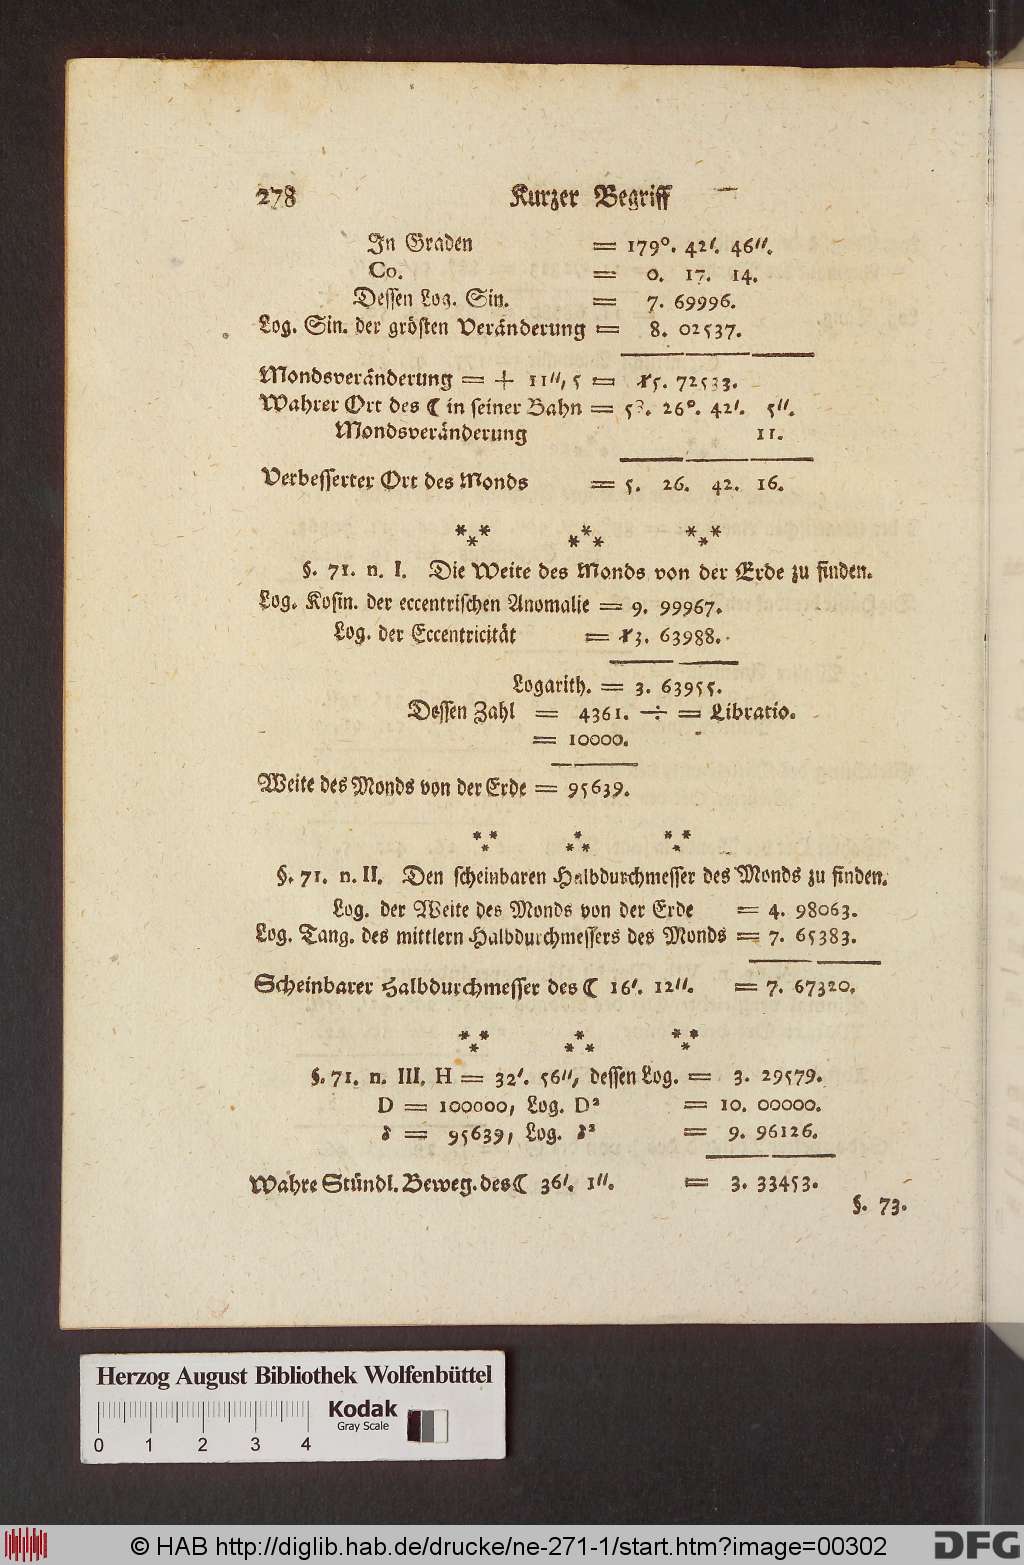 278 Kurzer Begriff
In Graden = 179°. 42′. 46″.
Co. = 0. 17. 14.
Dessen Log. Sin. = 7. 69996.
Log. Sin. der grösten Veränderung = 8. 02537.
Mondsveränderung = + 11″, 5 = 15. 72533.
Wahrer Ort des ☾ in seiner Bahn = 5ᴣ. 26°. 42′. 5″.
Mondsveränderung 11.
Verbesserter Ort des Monds = 5. 26. 42. 16.
*** *** ***
§. 71. n. I. Die Weite des Monds von der Erde zu finden.
Log. Kosin. der eccentrischen Anomalie = 9. 99967.
Log. der Eccentricität = 13. 63988.
Logarith. = 3. 63955.
Dessen Zahl = 4361. ÷ = Libratio.
= 10000.
Weite des Monds von der Erde = 95639.
*** *** ***
§. 71. n. II. Den scheinbaren Halbdurchmesser des Monds zu finden.
Log. der Weite des Monds von der Erde = 4. 98063.
Log. Tang. des mittlern Halbdurchmessers des Monds = 7. 65383.
Scheinbarer Halbdurchmesser des ☾ 16′. 12″. = 7. 67320.
*** *** ***
§. 71. n. III. H = 32′. 56″, dessen Log. = 3. 29579.
D = 100000, Log. D² = 10. 00000.
δ = 95639, Log. δ² = 9. 96126.
Wahre Stündl. Beweg. des ☾ 36′. 1″. = 3. 33453.
§. 73.
Herzog August Bibliothek Wolfenbüttel
Kodak
Gray Scale
0 1 2 3 4
© HAB http://diglib.hab.de/drucke/ne-271-1/start.htm?image=00302
DFG